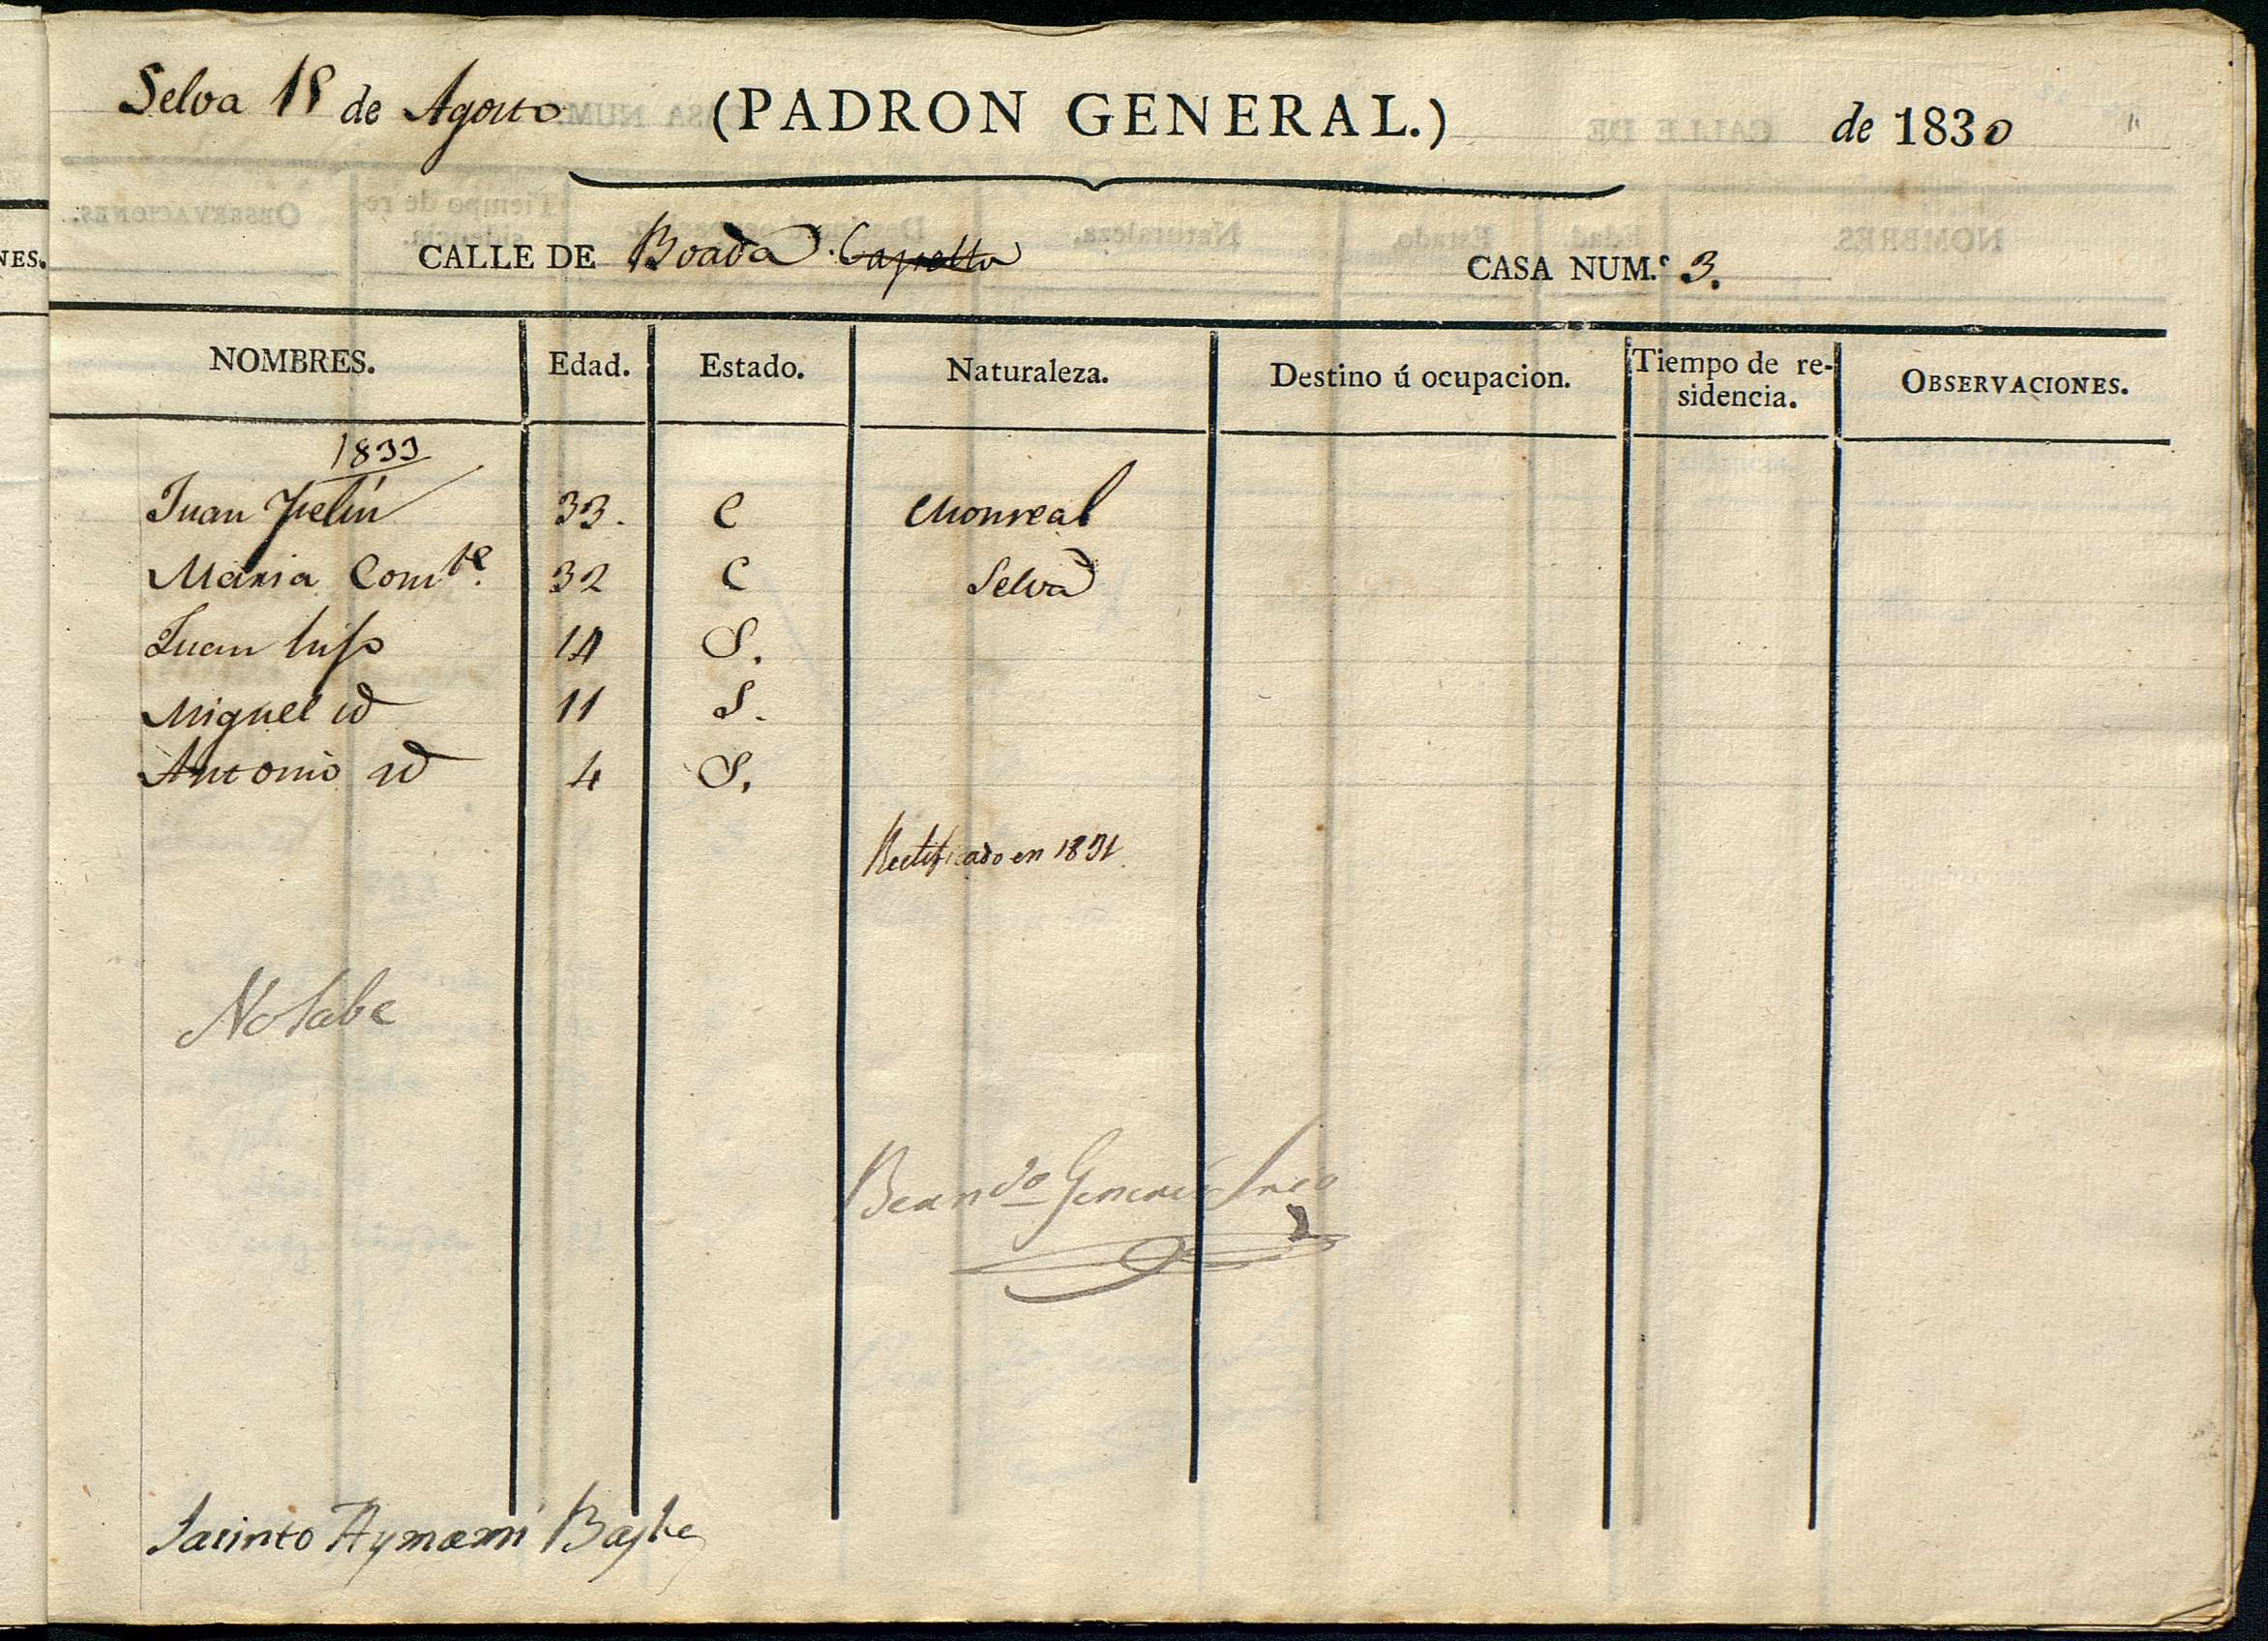 Selva 18 de Agosto (PADRON GENERAL.) de 1830
CALLE DE Boada. Capella CASA NUM.º 3.
NOMBRES. Edad. Estado. Naturaleza. Destino ú ocupacion. Tiempo de re-sidencia. OBSERVACIONES.
1833
Juan 33. C Monreal
Maria Com.te 32 C Selva
Juan hijo 14 S.
Miguel id 11 S.
Antonio id 4 S.
Rectificado en 1831.
No sabe
Jacinto Aymami Bayle
NES.